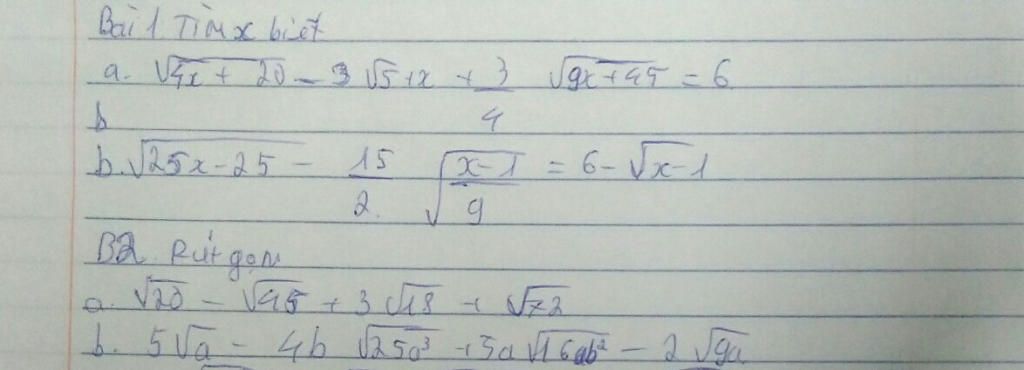 Bài 1 Tìm x biết
a. √4x + 20 - 3 √5+x + 3/4 √9x+45 = 6
b
b. √25x-25 - 15/2. √x-1/9 = 6 - √x-1
B2. Rút gọn
a. √20 - √45 + 3√18 + √72
b. 5√a - 4b √25a³ + 5a √16ab² - 2 √9a